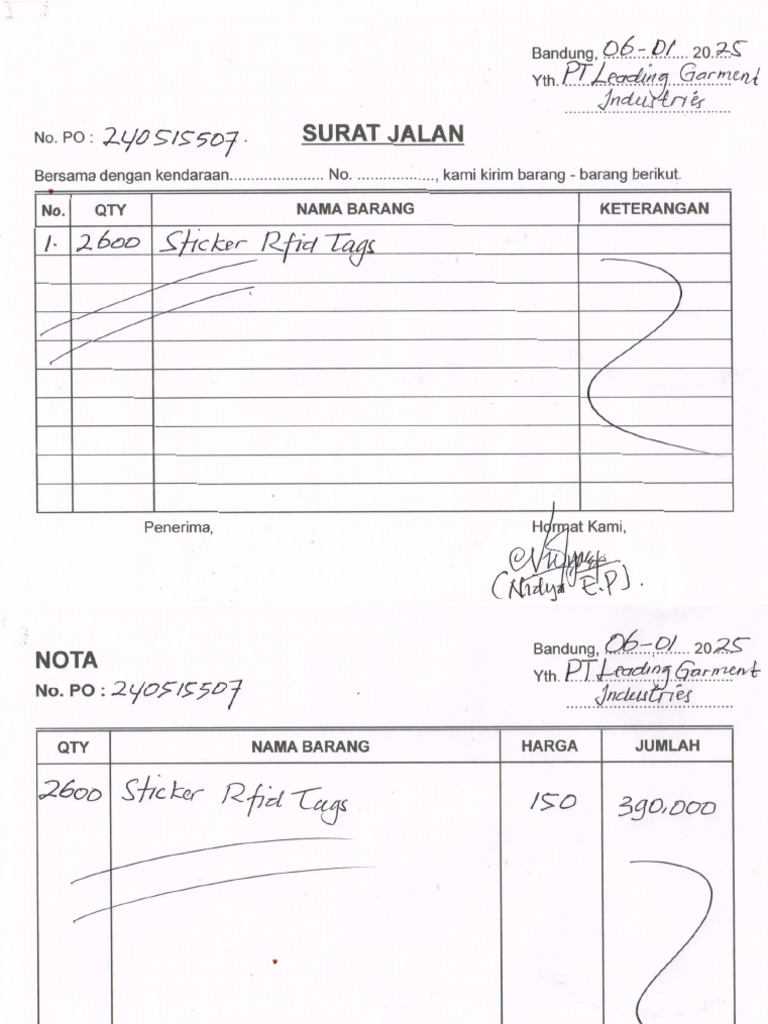 Bandung, 06-01 2025
Yth. PT Leading Garment
Industries
No. PO : 240515507.
SURAT JALAN
Bersama dengan kendaraan...................... No. .................., kami kirim barang - barang berikut.
No. QTY NAMA BARANG KETERANGAN
1. 2600 Sticker Rfid Tags
Penerima, Hormat Kami,
(Nidya E.P).
Bandung, 06-01 2025
NOTA
Yth. PT Leading Garment
No. PO : 240515507
Industries
QTY NAMA BARANG HARGA JUMLAH
2600 Sticker Rfid Tags 150 390,000